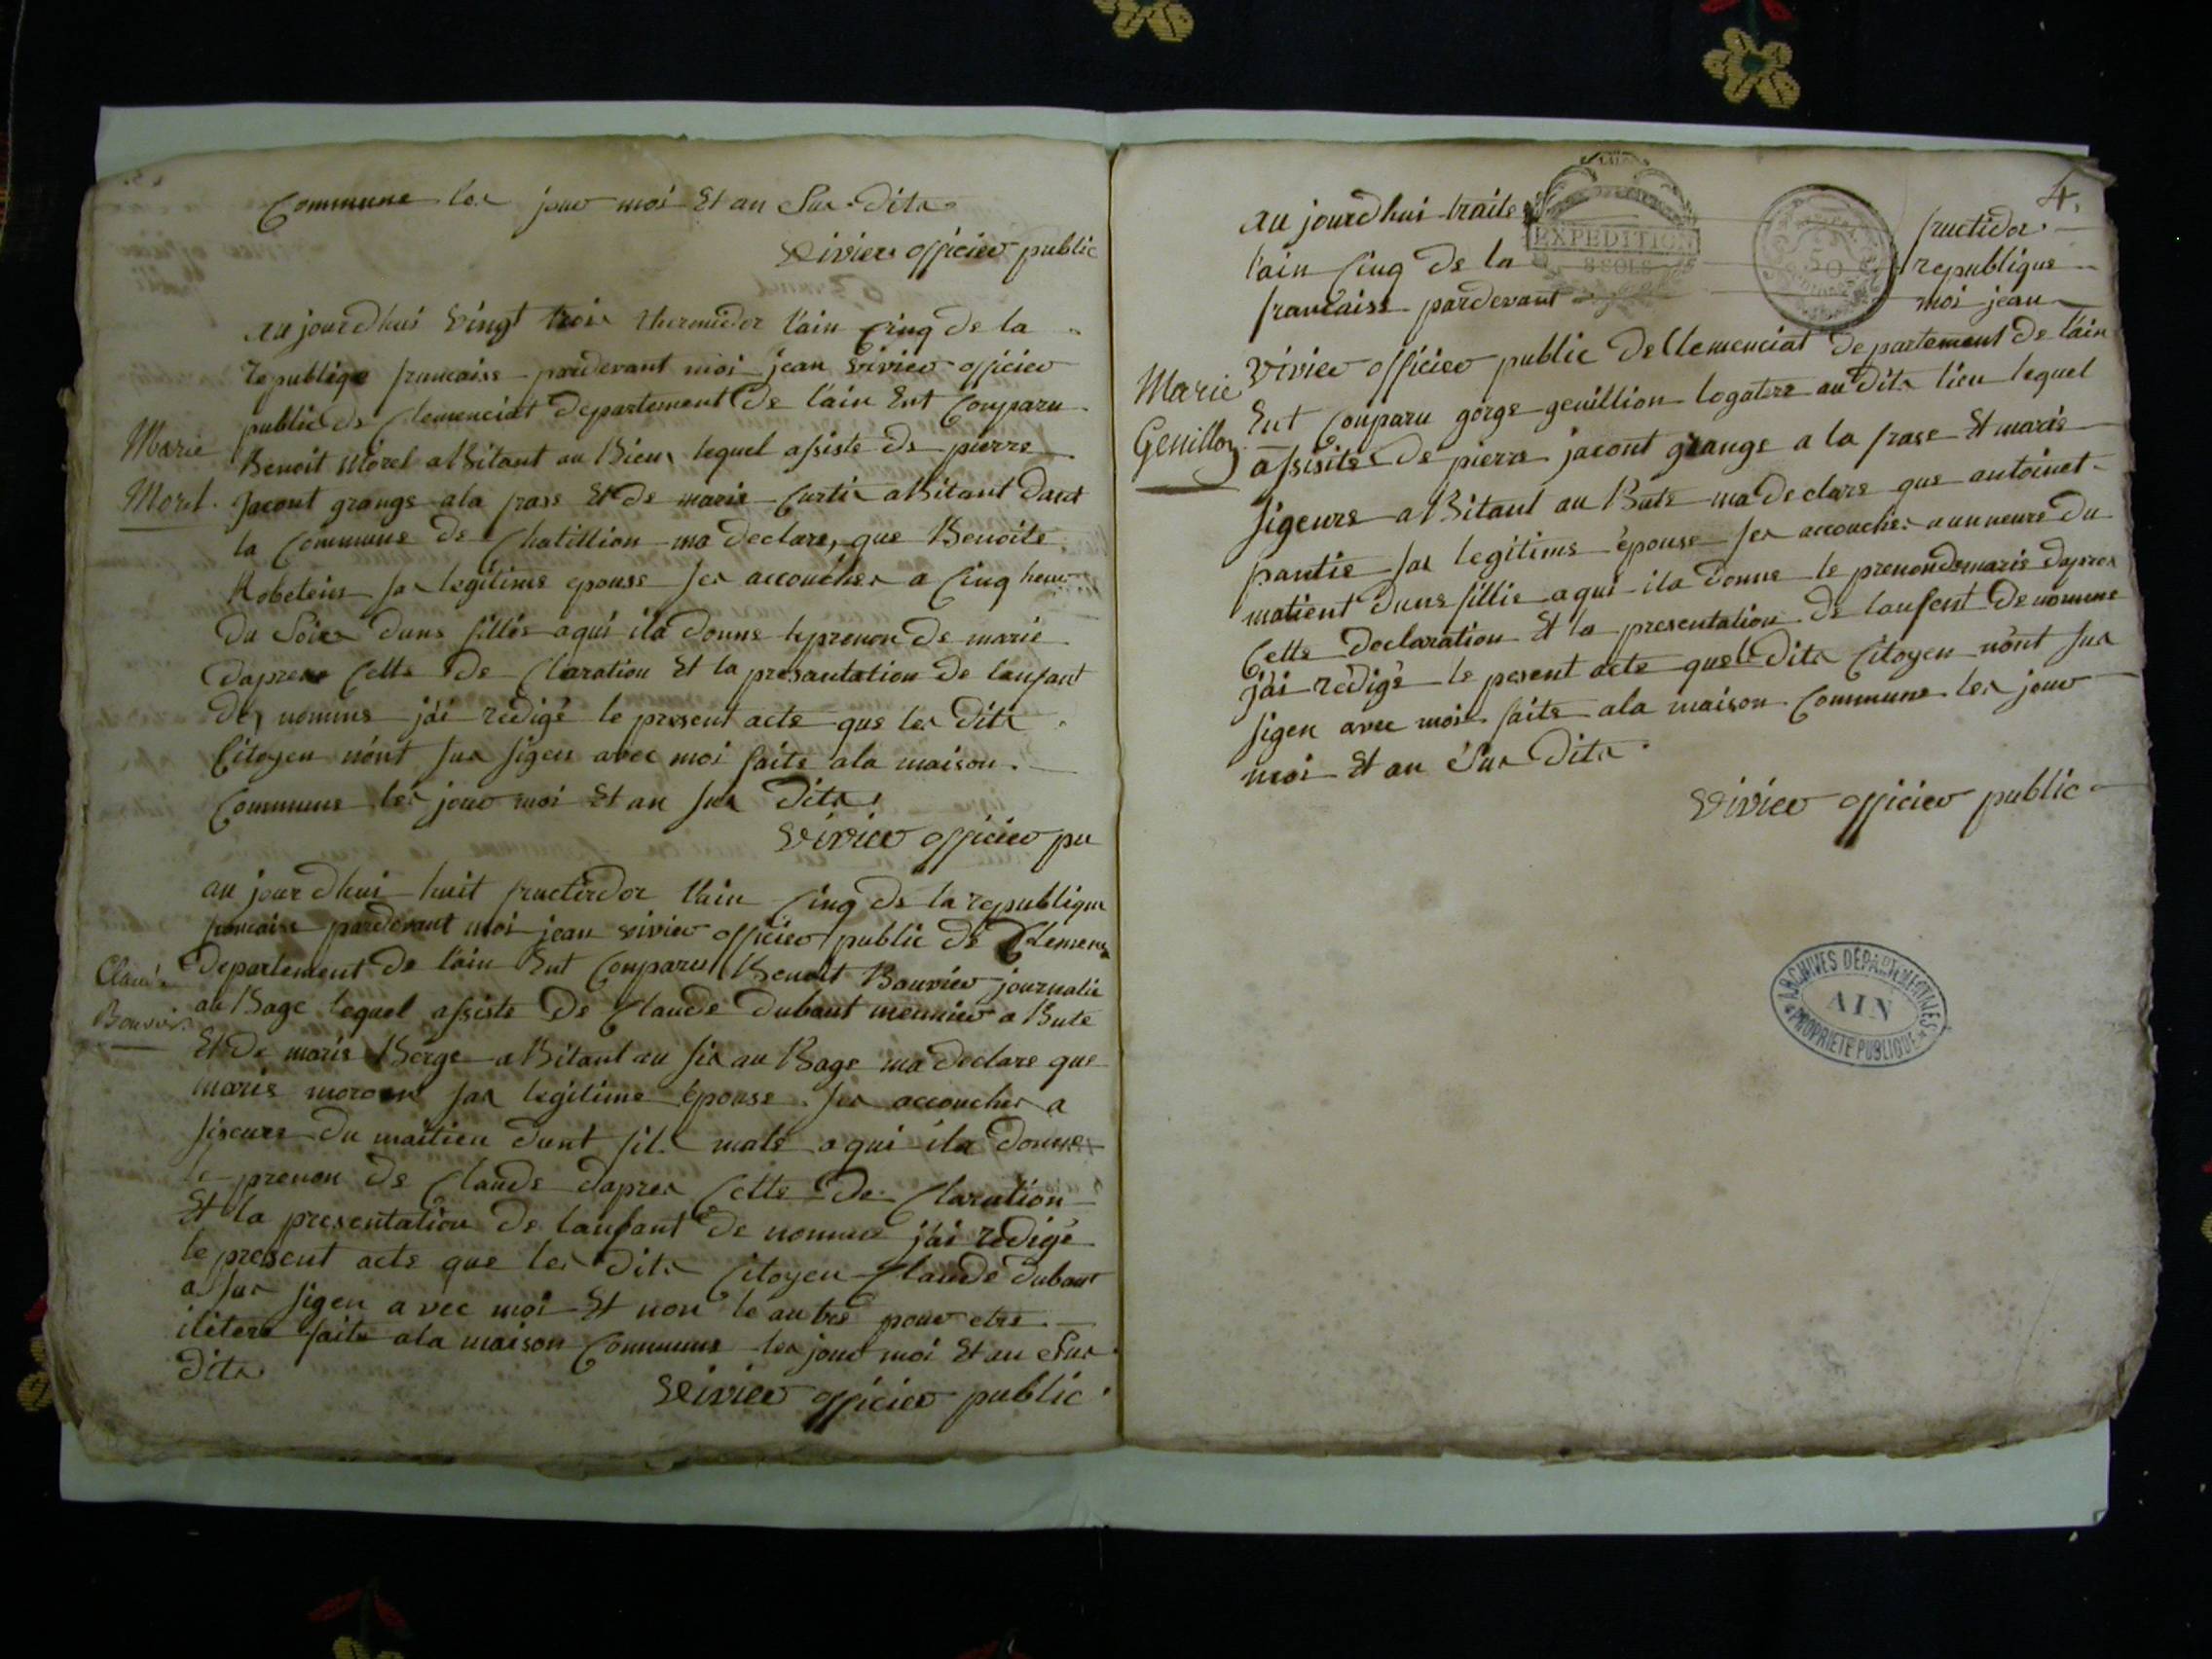 Commune les jour moi Et an Sus-Dits
Vivier officier public
Au jourdhui Vingt trois thermidor l'ain Cinq de la
Republiqe francaise pardevant moi jean Vivier officier
public de Clemenciat Departement De l'ain Ent Conparu
Marie
Morel
Benoit Morel abitant au Bieux lequel assiste de pierre
Jacont grange ala frase Et de marie Curtis abitant dant
la Commune De Chatillion ma Declare, que Benoite
Robetein sas legitime epouse ses accoucher a Cinq heur
Du Soier Dune fillie aqui ila Donne le prenon De marie
Dapres Cette De Claration Et la presantation De lanfant
De nomme j'ai redigé le present acte que les Dits
Citoyen nont sus sigen avec moi faite ala maison
Commune les jour moi Et an sus Dits
Vivier officier pu
au jour dhui huit fructirdor l'ain Cinq De la republique
francaise pardevant moi jean vivier officier public de Clemens
Claude
Bouvier
Departement De l'ain Ent Conparu Benoit Bouvier journalie
au Bage lequel assiste De Claude Dubout mennier a Bute
Et De marie Berge abitant au fis au Bage ma Declare que
marie sas legitime épouse ses accoucher a
siseure Du maitien Dunt fil male aqui ila Donne
le prenon De Claude Dapres Cette De Claration
Et la presentation De lanfant De nomme j'ai redigé
le present acte que les Dits Citoyen Claude Dubout
a sus sigen avec moi Et non le autre pour etre
iletere faite ala maison Commune les jour moi Et an Sus
Dits
Vivier officier public
4.
Au jourdhui traite fructidor
EXPEDITION
8 SOLS
50
l'ain Cinq De la republique
francaise pardevant moi jean
Vivier officier public De Clemenciat Departement De l'ain
Marie
Genillon
Ent Conparu gorge genillion logatere au Dits lieu lequel
assisite De pierre jacont grange a la frase Et marie
sigeure abitant au Bute ma Declare que antoinet
pantie sas legitime épouse ses accoucher aunneure Du
matient Dune fillie aqui ila Donne le prenon De marie Dapres
Cette Declaration Et la presentation De lanfent De nomme
j'ai rédigé le pesent acte que le Dits Citoyen nont sus
sigen avec moi faite ala maison Commune les jour
moi Et an Sus Dits
Vivier officier public
ARCHIVES DÉPARTEMENTALES
AIN
PROPRIÉTÉ PUBLIQUE